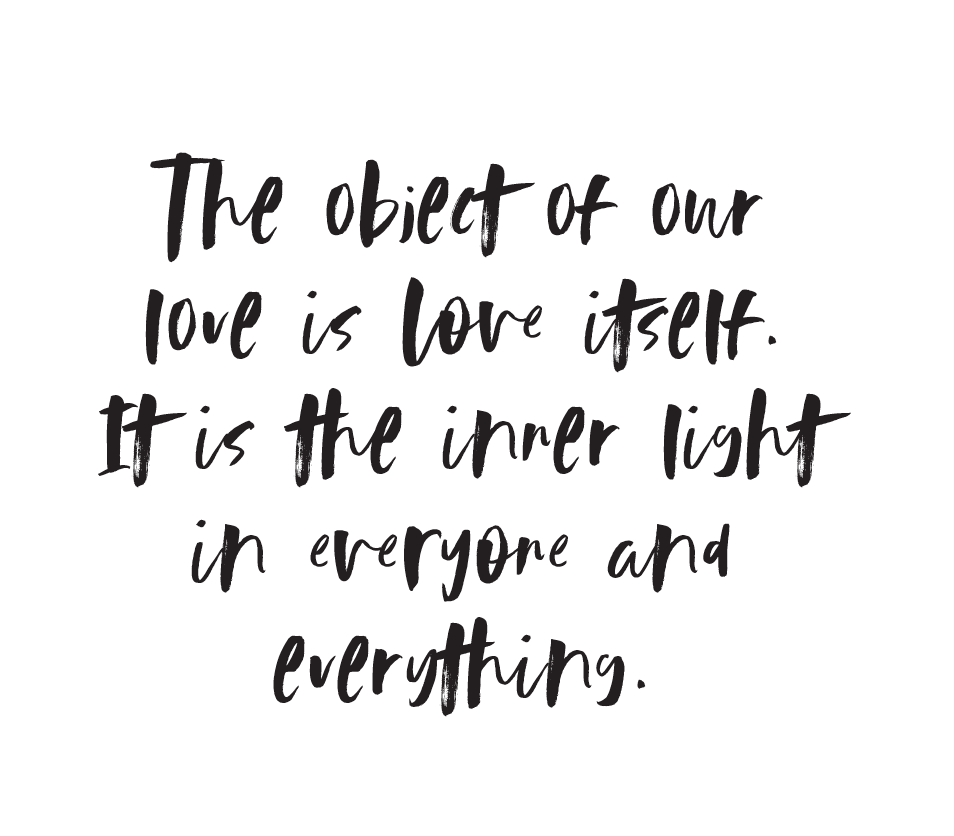 The object of our
love is love itself.
It is the inner light
in everyone and
everything.